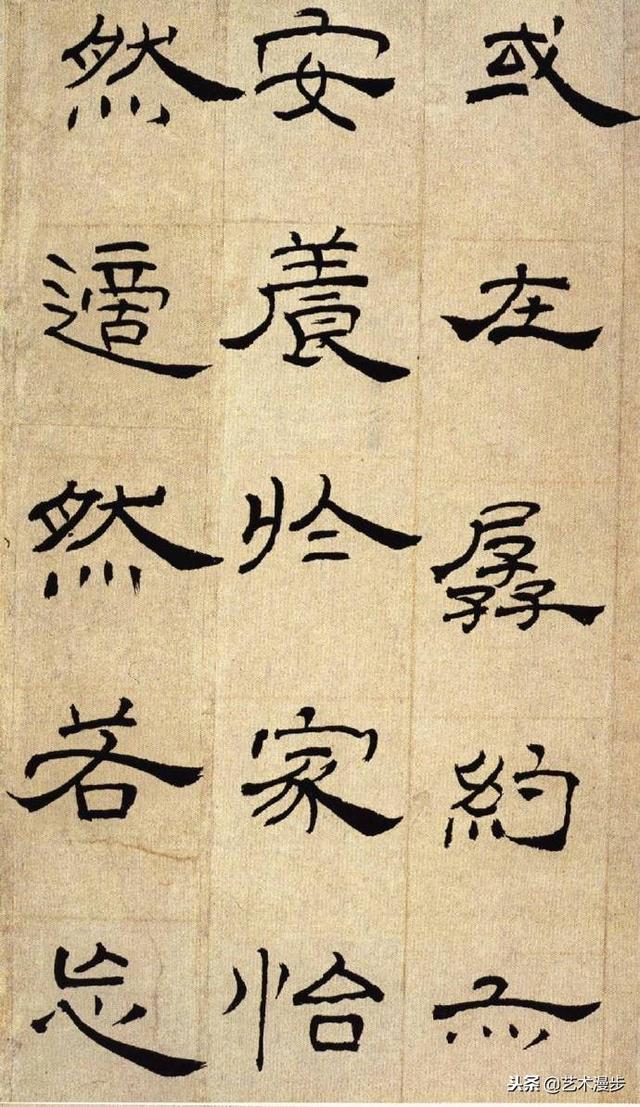 或在孱約亦
安養於家怡
然適然若忘
头条 @艺术漫步